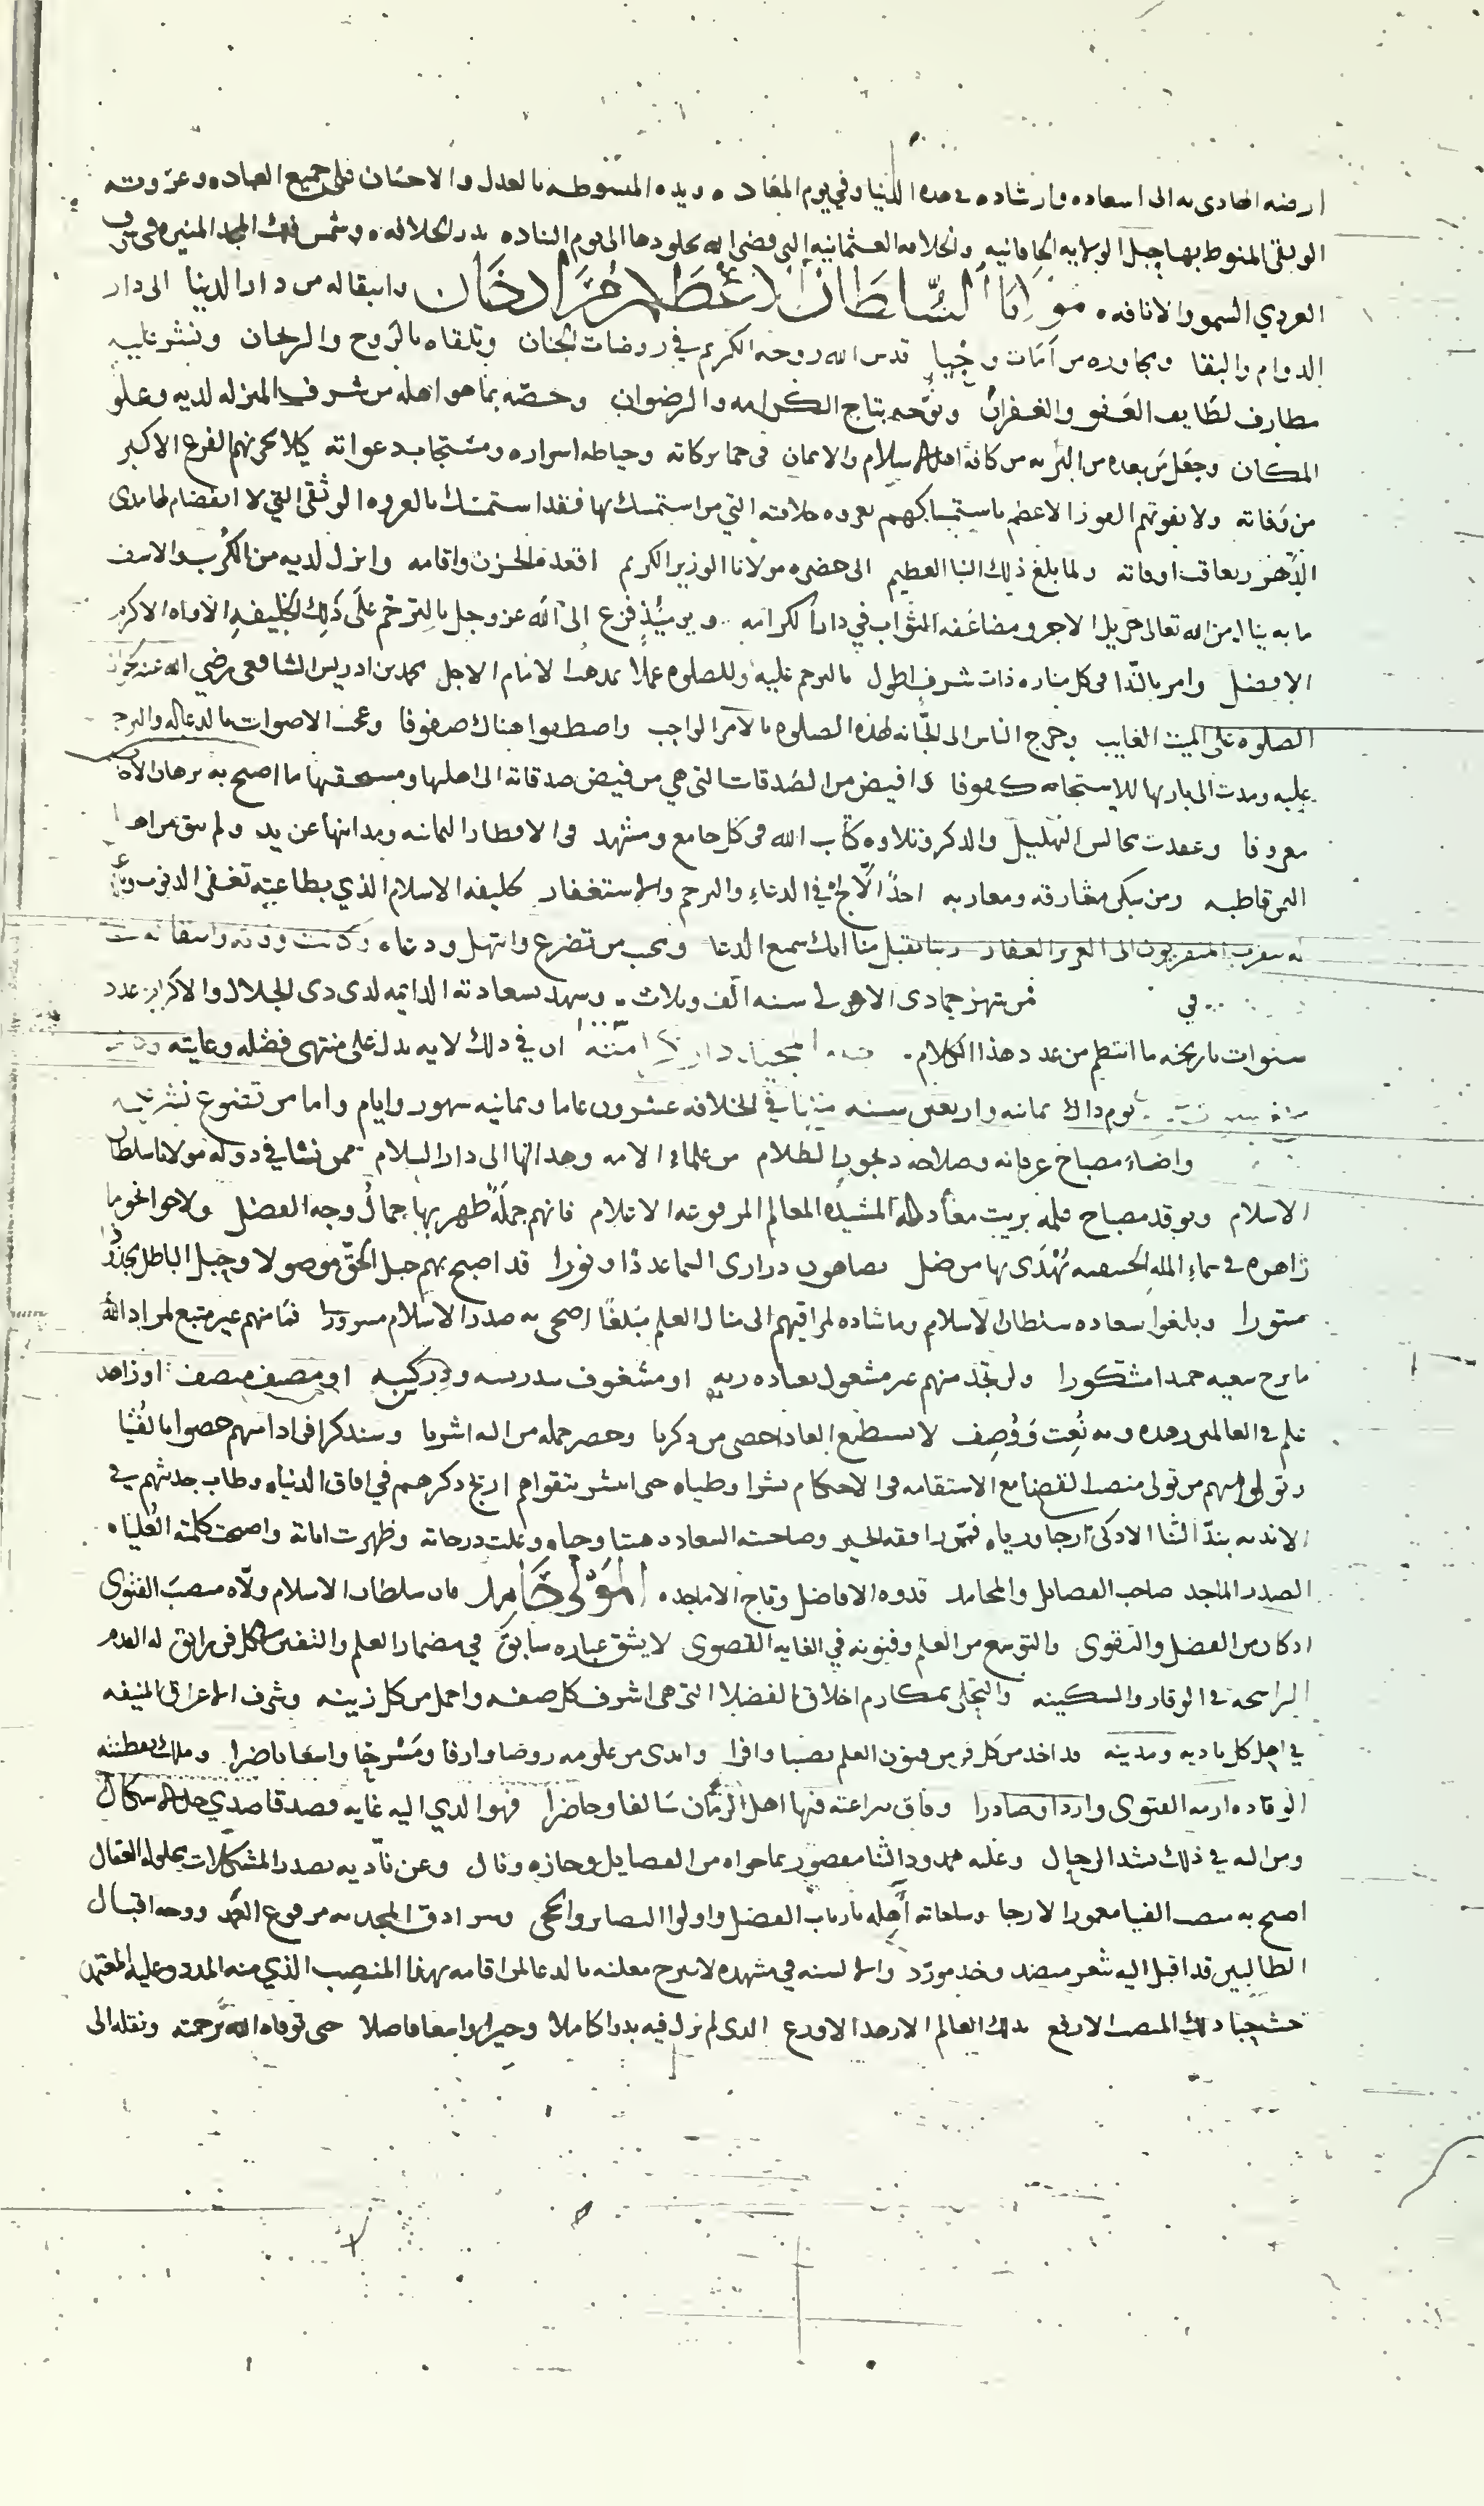 ارضه الهادى به الى اسعاده وارشاده فى هذه الدنيا وفي يوم المعاد ويده المبسوطه بالعدل والاحسان على جميع العباده وعروته
الوثقى المنوط بها حبل الولايه الخاقانيه والخلافه العثمانيه التي قضى الله بخلودها الى يوم التناده بدر الجلاله وشمس فلك المجد المنيره في
العردي السمو والانافه مولانا السلطان الاعظم مراد خان وانتقاله من دار الدنيا الى دار
الدوام والبقا ومجاوره من أمات وأحيا قدس الله روحه الكريم في روضات الجنان وتلقاه بالروح والريحان ونشر عليه
مطارف لطايف العفو والغفران وتوجه بتاج الكرامه والرضوان وخصه بما هو اهله من شرف المنزله لديه وعلو
المكان وجعل من بعده من البريه من كافة اهل الاسلام والايمان فى حما بركاته وحياطه اسراره ومستجاب دعواته كيلا يحزنهم الفزع الاكبر
من وفاته ولا يفوتهم الفوز الاعظم باستمساكهم بعروه خلافته التي من استمسك بها فقد استمسك بالعروه الوثقى التي لا انفصام لها مدى
الدهر وتعاقب اوقاته ولما بلغ ذلك النبا العظيم الى حضره مولانا الوزير الكريم اقعده الحزن واقامه وانزل لديه من الكرب والاسف
ما به ينال من الله تعالى جزيل الاجر ومضاعفه الثواب في دار الكرامه وحينئذ فزع الى الله عز وجل بالترحم على ذلك الخليفه الاواه الاكرم
الافضل وامر بالندا فى كل مناره ذات شرف اطول بالترحم عليه وللصلوه عملا بمذهب الامام الاجل محمد بن ادريس الشافعي رضي الله عنه بجواز
الصلوه على الميت الغايب وخرج الناس الى الجبانه لهذه الصلوه بالامر الواجب واصطفوا هناك صفوفا وعجت الاصوات بالدعا له والترحم
عليه ومدت الى بارئها للاستجابه كفوفا وافيض من الصدقات التي هي من فيض صدقاته الى اهلها ومستحقيها ما اصبح به برهان
معروفا وعقدت مجالس التهليل والذكر وتلاوه كتاب الله فى كل جامع ومشهد فى الاقطار اليمانيه ومدائنها عن يد ولم يبق من اهل
اليمن قاطبه ومن سكن مشارقه ومغاربه احدا الا لج في الدعاء والترحم والاستغفار لخليفه الاسلام الذي بطاعته تغفر الذنوب
به يتقرب المتقربون الى العزيز الغفار ربنا تقبل منا انك سميع الدعا ونحب من تضرع وابتهل ودعاه وكانت وفاته وانتقاله
في شهر جمادى الاولى سنه الف وثلاث وشهد بسعادته الدايمه لدى ذى الجلال والاكرام عدد
سنوات تاريخه ما انتظم من عدد هذا الكلام ان في ذلك لايه تدل على منتهى فضله وعنايته
يوم ذاك ثمانيه واربعين سنه منها في الخلافه عشرون عاما وثمانيه شهور وايام واما من تضوع نشر
واضاء مصباح عرفانه وصلاحه دجور الظلام من علماء الامه وهداتها الى دار السلام ممن نشا في دوله مولانا سلطان
الاسلام وتوقد مصباح علمه بزيت معادله المشيده المعالم المرفوعه الاعلام فانهم جملة ظهر بها جمال وجه الفضل ولاحوا نجوما
زاهره في سماء المله الحنيفيه يُهتدى بها من ضل يضاهون درارى السما عددا ونورا قد اصبح بهم حبل الحق موصولا وحبل الباطل
مبتورا وبلغوا بسعاده سلطان الاسلام وما شاده لمراقيهم الى منال العلم مبلغا اضحى به صدر الاسلام مسرورا فما منهم غير متبع لمراد الله
ما برح سعيه حميدا مشكورا ولن تجد منهم غير مشغول بعباده ربه او مشغوف بتدريسه ودرر كتبه او مصنف منصف او زاهد
علم في العالمين زهده وبه نُعِت ووُصِف لا يستطيع العاد احصى من ذكرنا وحصر جمله من اليه اشرنا وسنذكر افرادا منهم خصوا بالفتيا
وتولوها ومنهم من تولى منصب القضا مع الاستقامه في الاحكام نشرا وطياه حى انتشر بتقواهم ارج ذكرهم في افاق الدنياه وطاب حديثهم في
الانديه بندّ الثنا الاذكى أرجا ورياه فممن رافقه الخير وصاحبته السعاده ميتا وحياه وعلت درجاته وظهرت اماته واصبحت كلمته العلياه
الصدر الماجد صاحب الفضائل والمحامد قدوه الافاضل وتاج الاماجده المولى حامد فان سلطان الاسلام ولاه منصب الفتوى
اذ كان من الفضل والتقوى والتوسع من العلم وفنونه في الغايه القصوى لا يشق غباره سابق في مضمار العلم والتفنن بكل فن رايق له القدم
الراسخه في الوقار والسكينه والتحلى بمكارم اخلاق الفضلا التى هى اشرف كل صفه واجمل من كل زينه وشرف الاعراق المنيفه
في اهل كل باديه ومدينه قد اخذ من كل فن من فنون العلم نصيبا وافرا وابدى من علومه روضا وارفا ومسرحا واسعا ناضرا وملك بفطنته
الوقاده ازمه الفتوى واردا وصادرا وفاق ببراعته فيها اهل الزمان سالفا وحاضرا فهو الذي اليه غايه قصد قاصدي حل الاشكال
ومن اليه في ذلك تشد الرحال وعليه ممدود الثنا مقصور بما حواه من الفضايل وحازه ونال وعن ناديه تصدر المشكلات محلوله العقال
اصبح به منصب الفتيا معمور الارجا وساحاته آهله بارباب الفضل واولوا البصاير والحجى وسرادق المجد به مرفوع العمد ووجه اقبال
الطالبين قد اقبل اليه بثغر مبتسم وخد مورد والالسنه في مشهده لا تبرح معلنه بالدعا لمن اقامه بهذا المنصب الذي منه المدد وعليه المعتمد
ذلك المنصب الارفع بذلك العالم الازهد الاورع الذى لم نزل فيه بدرا كاملا وحبرا واسعا فاضلا حتى توفاه الله برحمته ونقله الى